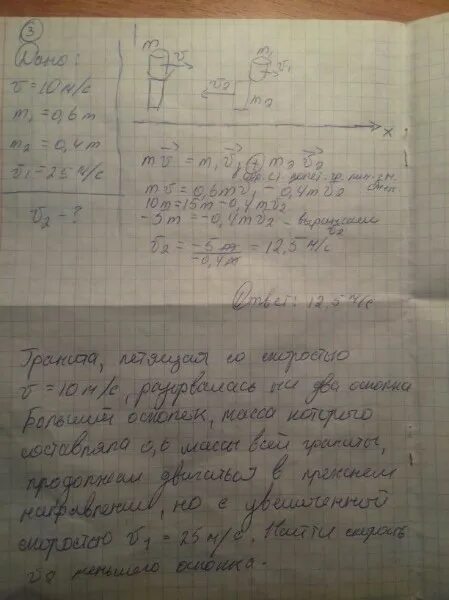 3
Дано:
v = 10 м/с
m₁ = 0,6 m
m₂ = 0,4 m
v₁ = 25 м/с
v₂ - ?
m v
m₁ v₁
v₂
m₂
x
mv = m₁v₁ + m₂v₂
mv = 0,6mv₁ - 0,4mv₂
10m = 15m - 0,4mv₂
-5m = -0,4mv₂ - выражаем v₂
v₂ = -5m / -0,4m = 12,5 м/с
Ответ: 12,5 м/с
Граната, летящая со скоростью
v = 10 м/с, разорвалась на два осколка
Больший осколок, масса которого
составляла 0,6 массы всей гранаты,
продолжал двигаться в прежнем
направлении, но с увеличенной
скоростью v₁ = 25 м/с. Найти скорость
меньшего осколка.